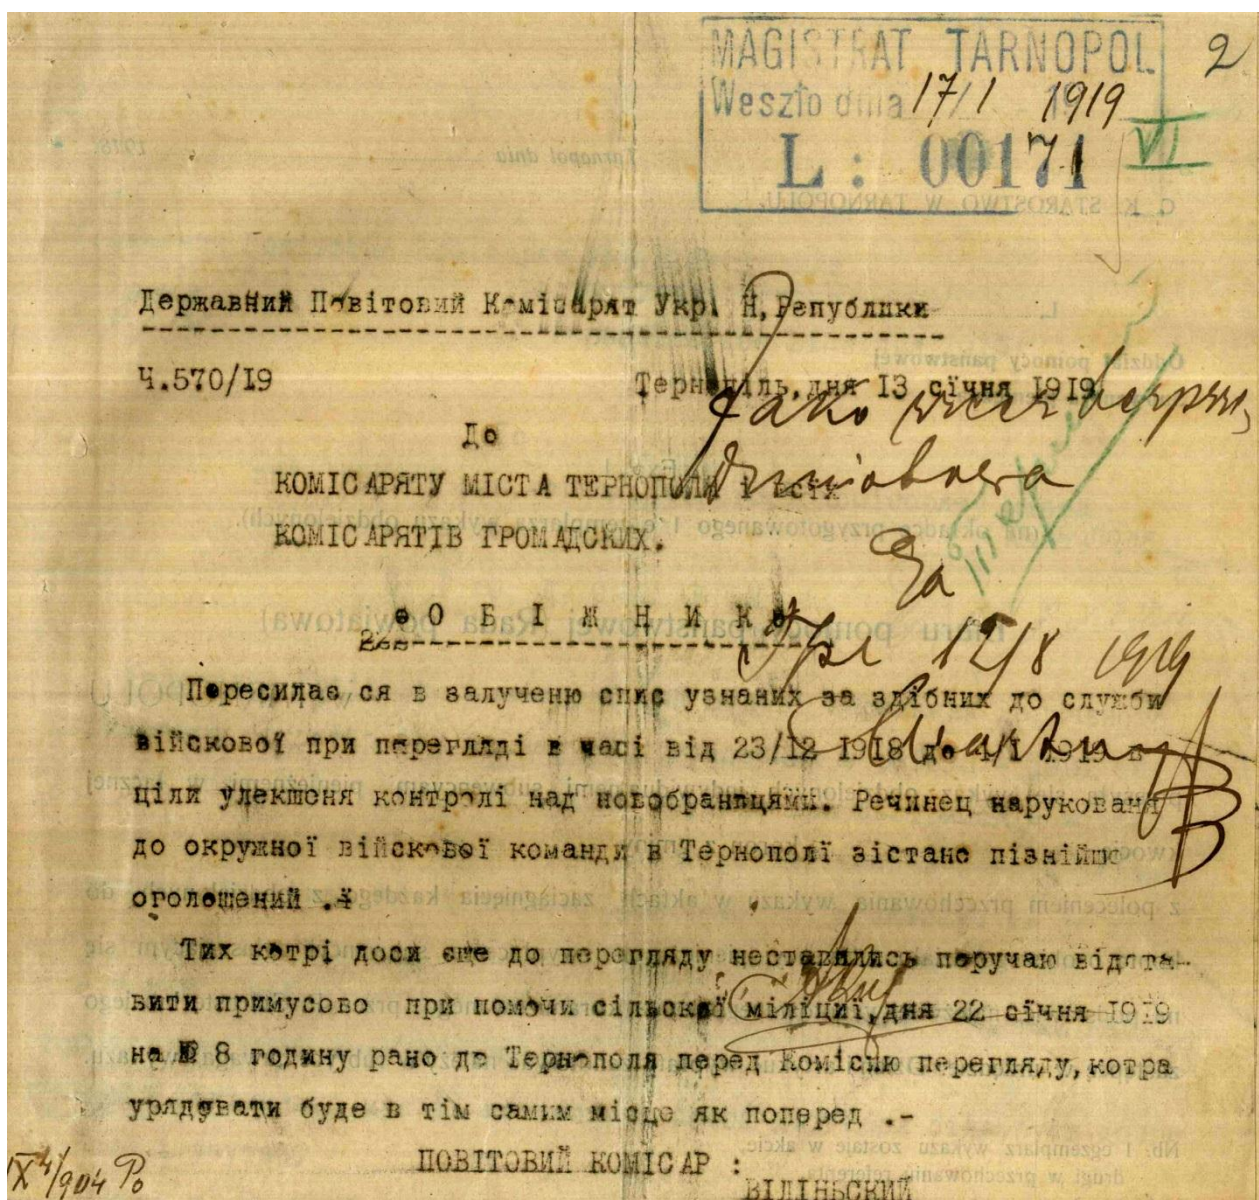 MAGISTRAT TARNOPOL
2
Weszło dnia 17/1 1919
VI
L: 00171
Державний Повітовий Комісарят Укр. Н. Републики
Ч.570/І9
Тернопіль, дня ІЗ січня І9І9
Jako
До
КОМІСАРЯТУ МІСТА ТЕРНОПОЛЯ І ВСІХ
КОМІСАРЯТІВ ГРОМАДСКИХ.
За
О Б І Ж Н И К
Tpl 12/8 1919
Пересилає ся в залученю спис узнаних за здібних до служби
війскової при перегляді в часі від 23/І2 І9І8 до 4/І І9І9 в
ціли улекшеня контролі над новобранцями. Речинец наруковання
до окружної війскової команди в Тернополї зістане пізнійше
оголошений .
Тих котрі доси єще до перегляду неставились поручаю відста-
вити примусово при помочи сільскої міліциї, дня 22 січня І9І9
на 8 годину рано до Тернополя перед Комісию перегляду, котра
урядувати буде в тім самим місце як поперед .-
ПОВІТОВИЙ КОМІСАР :
ВІЛІНЬСКИЙ
IX 4/904